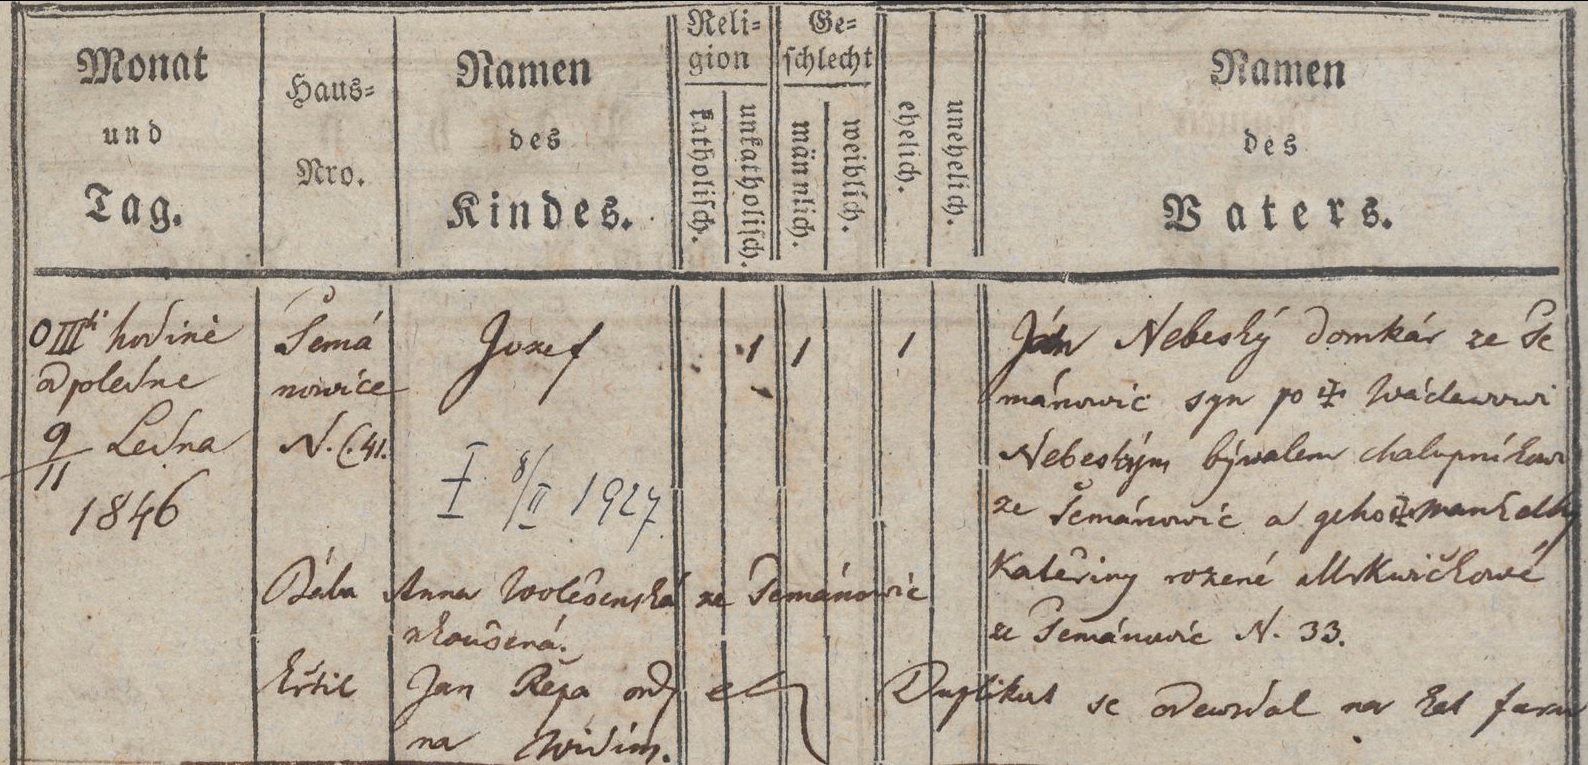 Monat
und
Tag.
Haus-
Nro.
Namen
des
Kindes.
Reli-
gion
katholisch.
unkatholisch.
Ge-
schlecht
männlich.
weiblich.
ehelich.
unehelich.
Namen
des
Vaters.
O IIIti hodině
odpoledne
9/11 Ledna
1846
Šemá
nowice
N. C. 41.
Jozef
I 8/II 1927
1 1 1
Ján Nebeský domkár ze Še
mánowic syn po ☩ Wáclawowi
Nebeským býwalem chalupníkowi
ze Šemánowic a geho ☩ manželky
Kateřiny rozené Mrkwičkowé
ze Šemánowic N. 33.
Bába Anna Wolešenská ze Šemánowic
zkoušená.
Křtil Jan Řepa
na Widim.
Duplikat se odewdal na kat faru